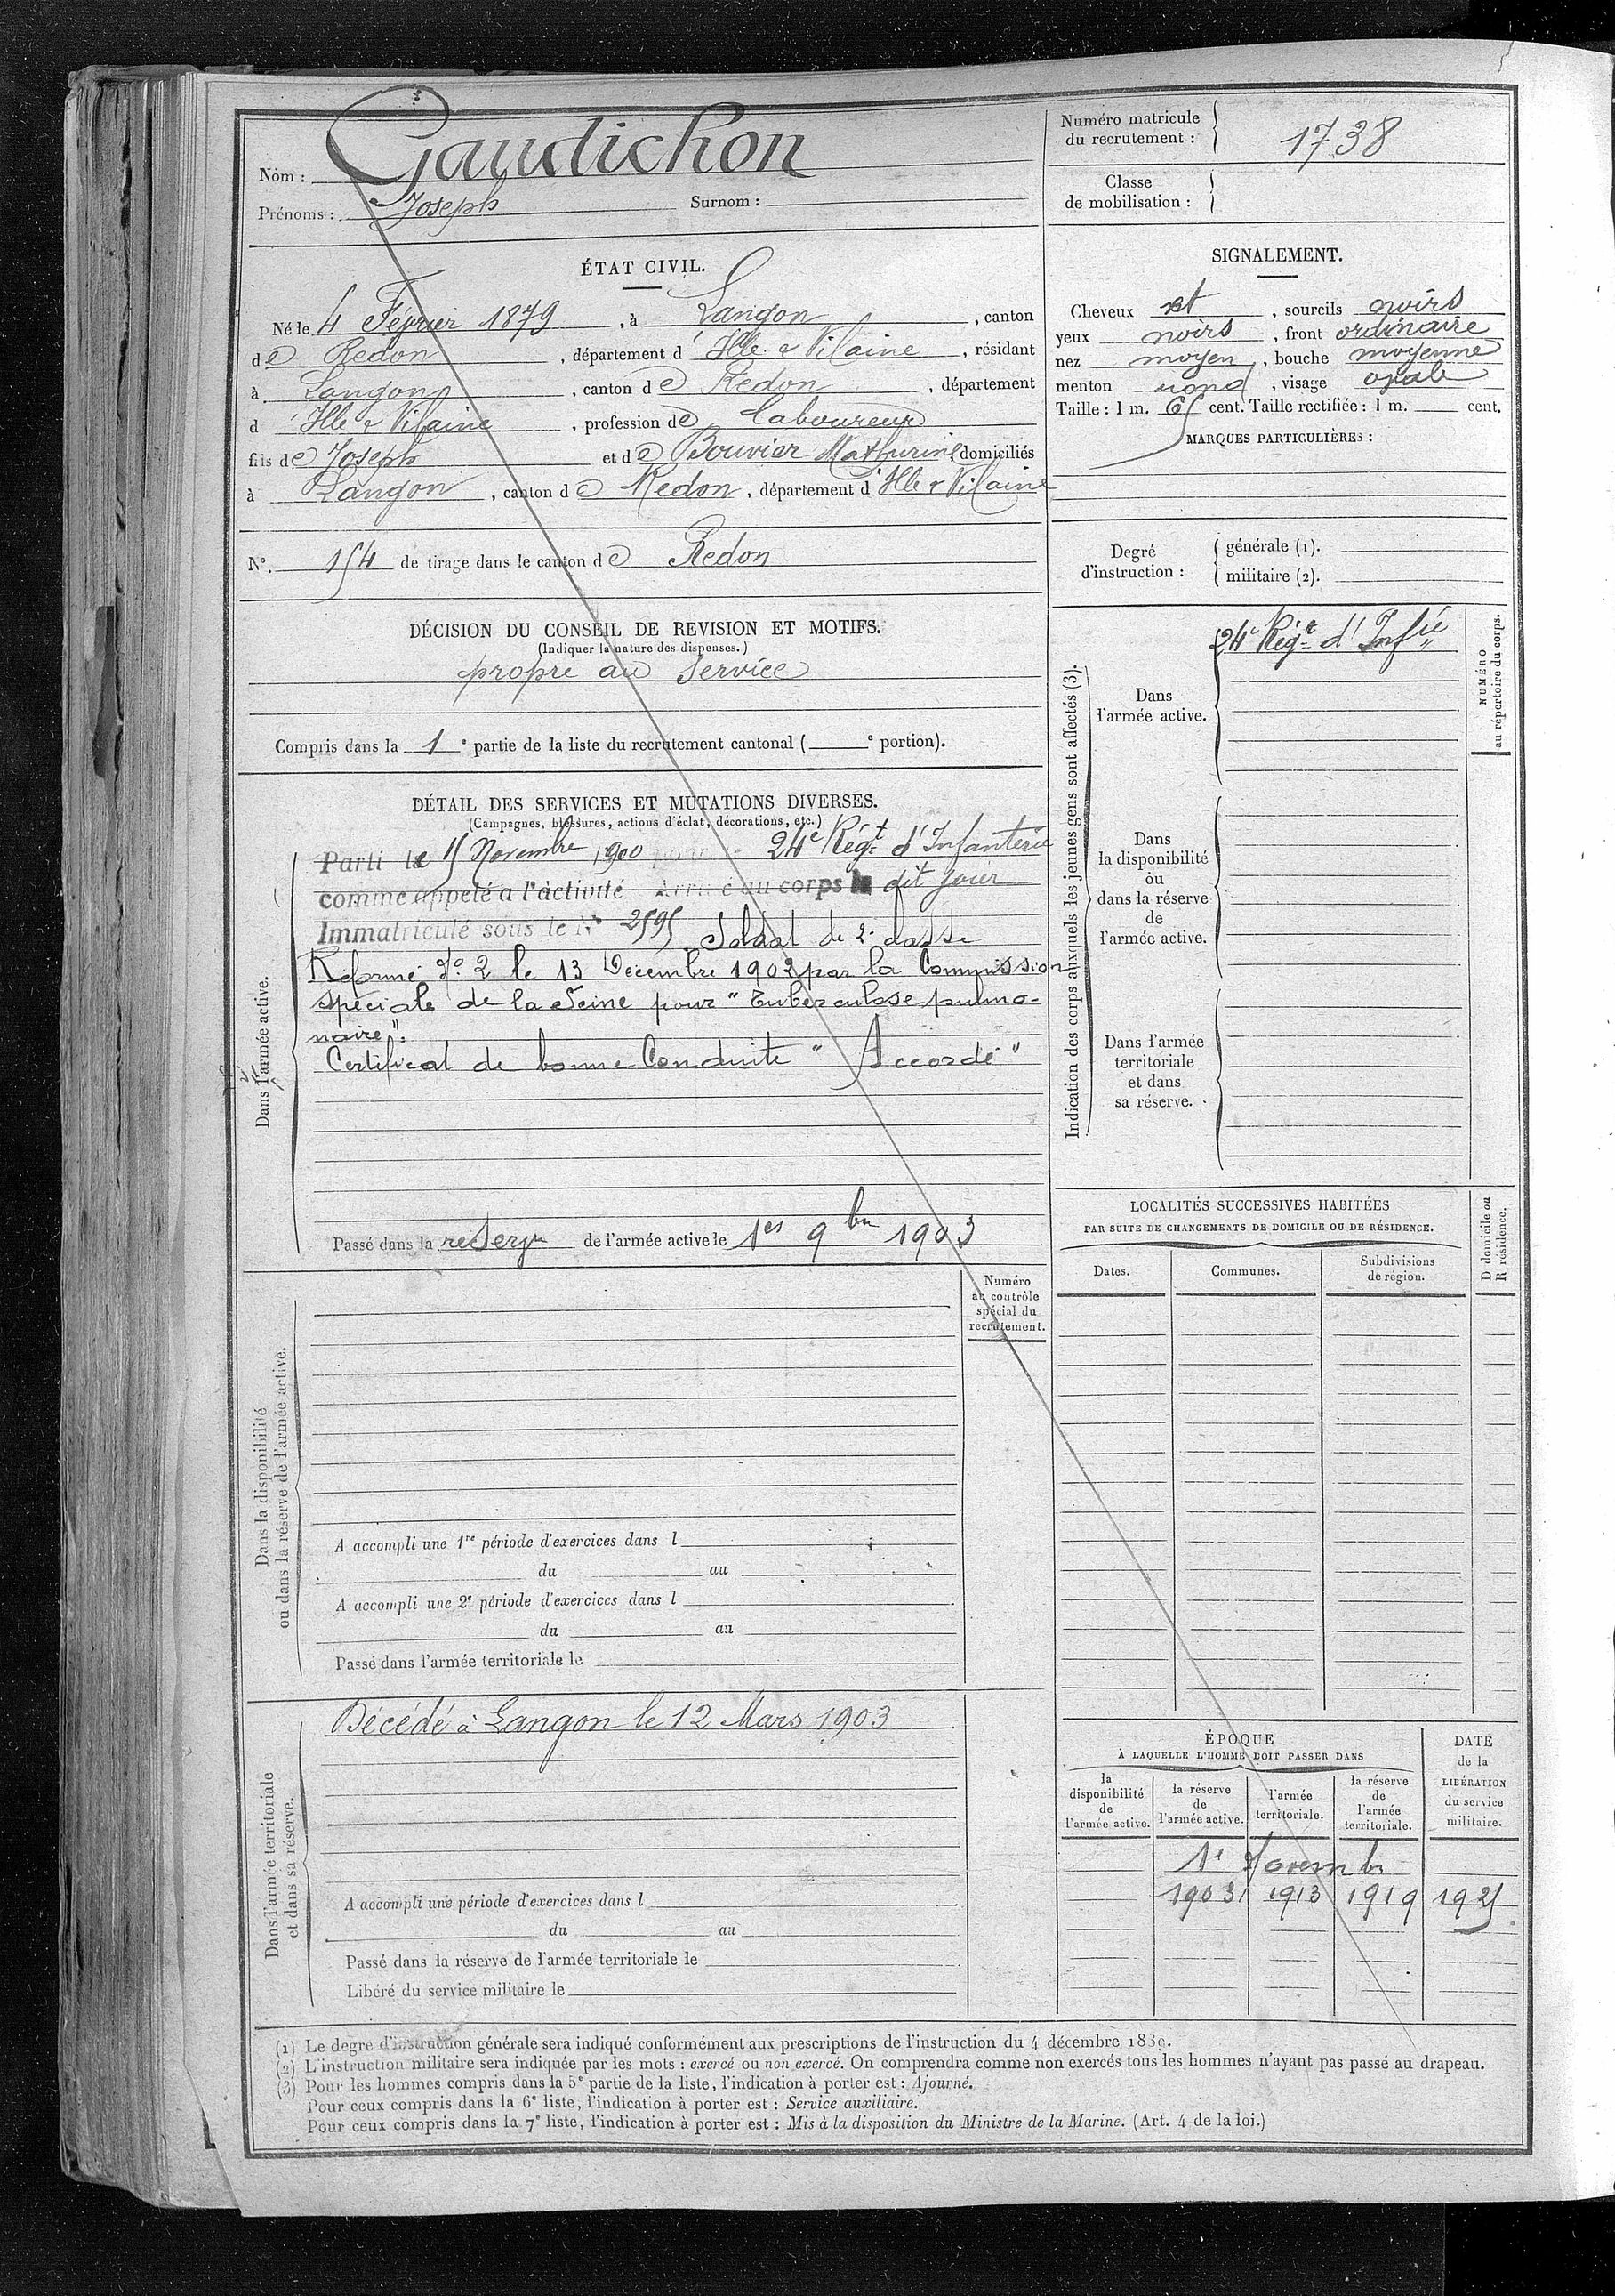 Nom : Gaudichon
Prénoms : Joseph Surnom :
Numéro matricule
du recrutement : 1738
Classe
de mobilisation :
ÉTAT CIVIL.
Né le 4 Février 1879, à Langon, canton
de Redon, département d'Ille & Vilaine, résidant
à Langon, canton de Redon, département
d'Ille & Vilaine, profession de laboureur
fils de Joseph et de Bouvier Mathurine, domiciliés
à Langon, canton de Redon, département d'Ille & Vilaine
N°. 154 de tirage dans le canton de Redon
SIGNALEMENT.
Cheveux et, sourcils noirs
yeux noirs, front ordinaire
nez moyen, bouche moyenne
menton rond, visage ovale
Taille : 1 m. 65 cent. Taille rectifiée : 1 m. cent.
MARQUES PARTICULIÈRES :
Degré
d'instruction :
générale (1).
militaire (2).
DÉCISION DU CONSEIL DE REVISION ET MOTIFS.
(Indiquer la nature des dispenses.)
propre au service
Compris dans la 1e partie de la liste du recrutement cantonal ( e portion).
DÉTAIL DES SERVICES ET MUTATIONS DIVERSES.
(Campagnes, blessures, actions d'éclat, décorations, etc.)
Dans l'armée active.
Parti le 15 Novembre 1900 pour le 24e Régt d'Infanterie
comme appelé a l'activité Arrivé au corps le dit jour
Immatriculé sous le N° 2595 Soldat de 2e classe
Réformé No 2 le 13 Décembre 1902 par la Commission
spéciale de la Seine pour "Tuberculose pulmo-
naire".
Certificat de bonne Conduite "Accordé"
Passé dans la réserve de l'armée active le 1er 9bre 1903
Indication des corps auxquels les jeunes gens sont affectés (3).
Dans
l'armée active.
24e Régt d'Infie
NUMÉRO
au répertoire du corps.
Dans
la disponibilité
ou
dans la réserve
de
l'armée active.
Dans l'armée
territoriale
et dans
sa réserve.
LOCALITÉS SUCCESSIVES HABITÉES
PAR SUITE DE CHANGEMENTS DE DOMICILE OU DE RÉSIDENCE.
D domicile ou
R résidence.
Dates.
Communes.
Subdivisions
de région.
Numéro
au contrôle
spécial du
recrutement.
Dans la disponibilité
ou dans la réserve de l'armée active.
A accompli une 1re période d'exercices dans l
du au
A accompli une 2e période d'exercices dans l
du au
Passé dans l'armée territoriale le
Dans l'armée territoriale
et dans sa réserve.
Décédé à Langon le 12 Mars 1903
A accompli une période d'exercices dans l
du au
Passé dans la réserve de l'armée territoriale le
Libéré du service militaire le
ÉPOQUE
À LAQUELLE L'HOMME DOIT PASSER DANS
la
disponibilité
de
l'armée active.
la réserve
de
l'armée active.
l'armée
territoriale.
la réserve
de
l'armée
territoriale.
DATE
de la
LIBÉRATION
du service
militaire.
1e Novembre
1903 1913 1919 1925
(1) Le degre d'instruction générale sera indiqué conformément aux prescriptions de l'instruction du 4 décembre 1889.
(2) L'instruction militaire sera indiquée par les mots : exercé ou non exercé. On comprendra comme non exercés tous les hommes n'ayant pas passé au drapeau.
(3) Pour les hommes compris dans la 5e partie de la liste, l'indication à porter est : Ajourné.
Pour ceux compris dans la 6e liste, l'indication à porter est : Service auxiliaire.
Pour ceux compris dans la 7e liste, l'indication à porter est : Mis à la disposition du Ministre de la Marine. (Art. 4 de la loi.)